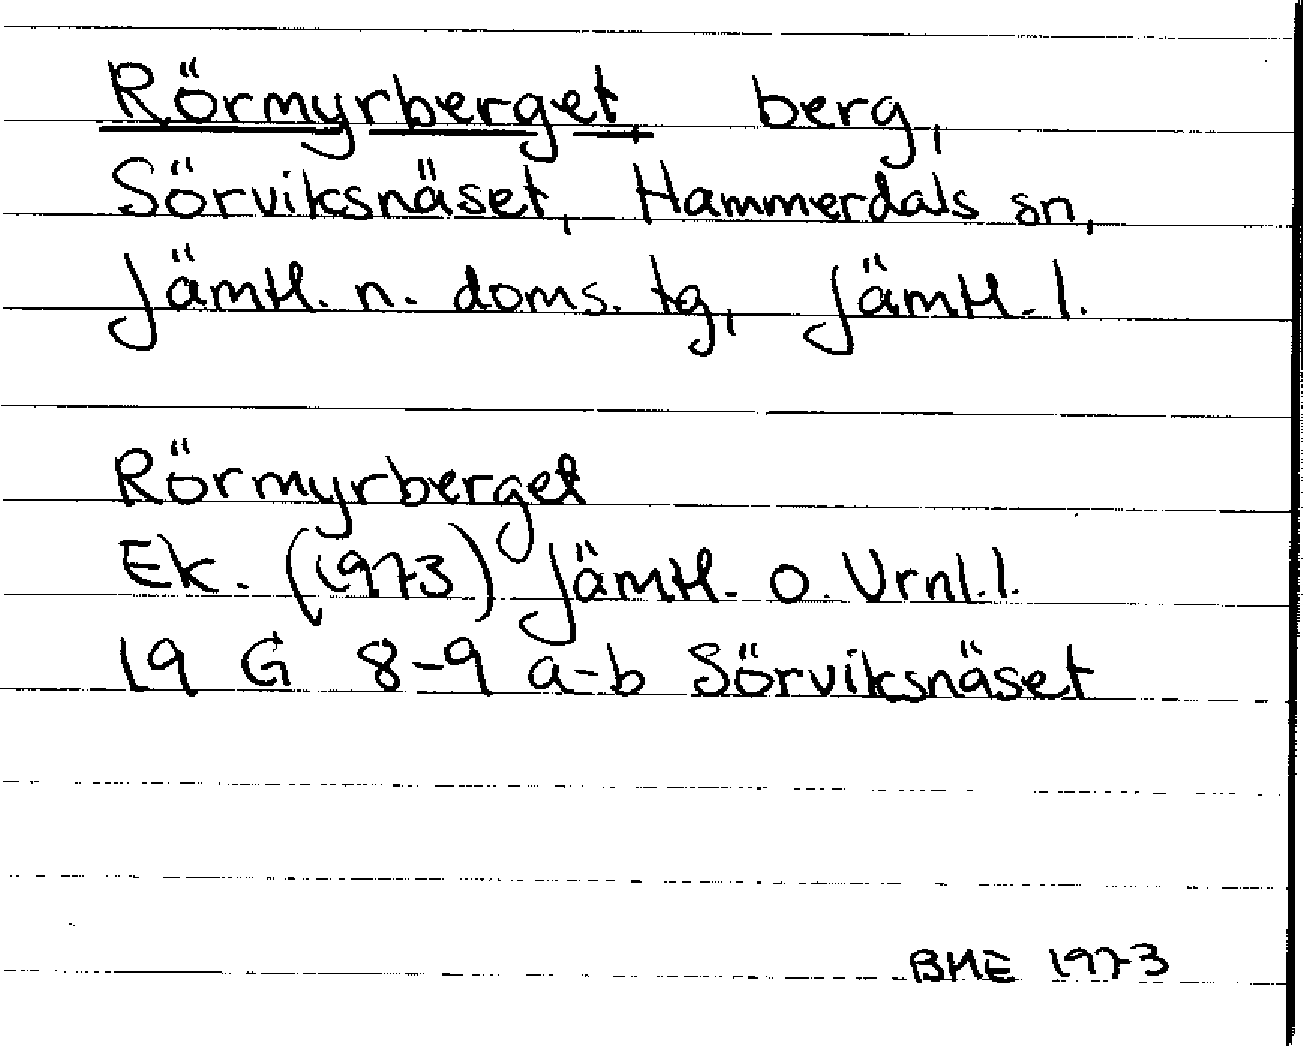 Rörmyrberget, berg,
Sörviksnäset, Hammerdals sn,
Jämtl. n. doms. tg, Jämtl. l.
Rörmyrberget
Ek. (1973) Jämtl. o. Vrnl. l.
19 G 8-9 a-b Sörviksnäset
BME 1973